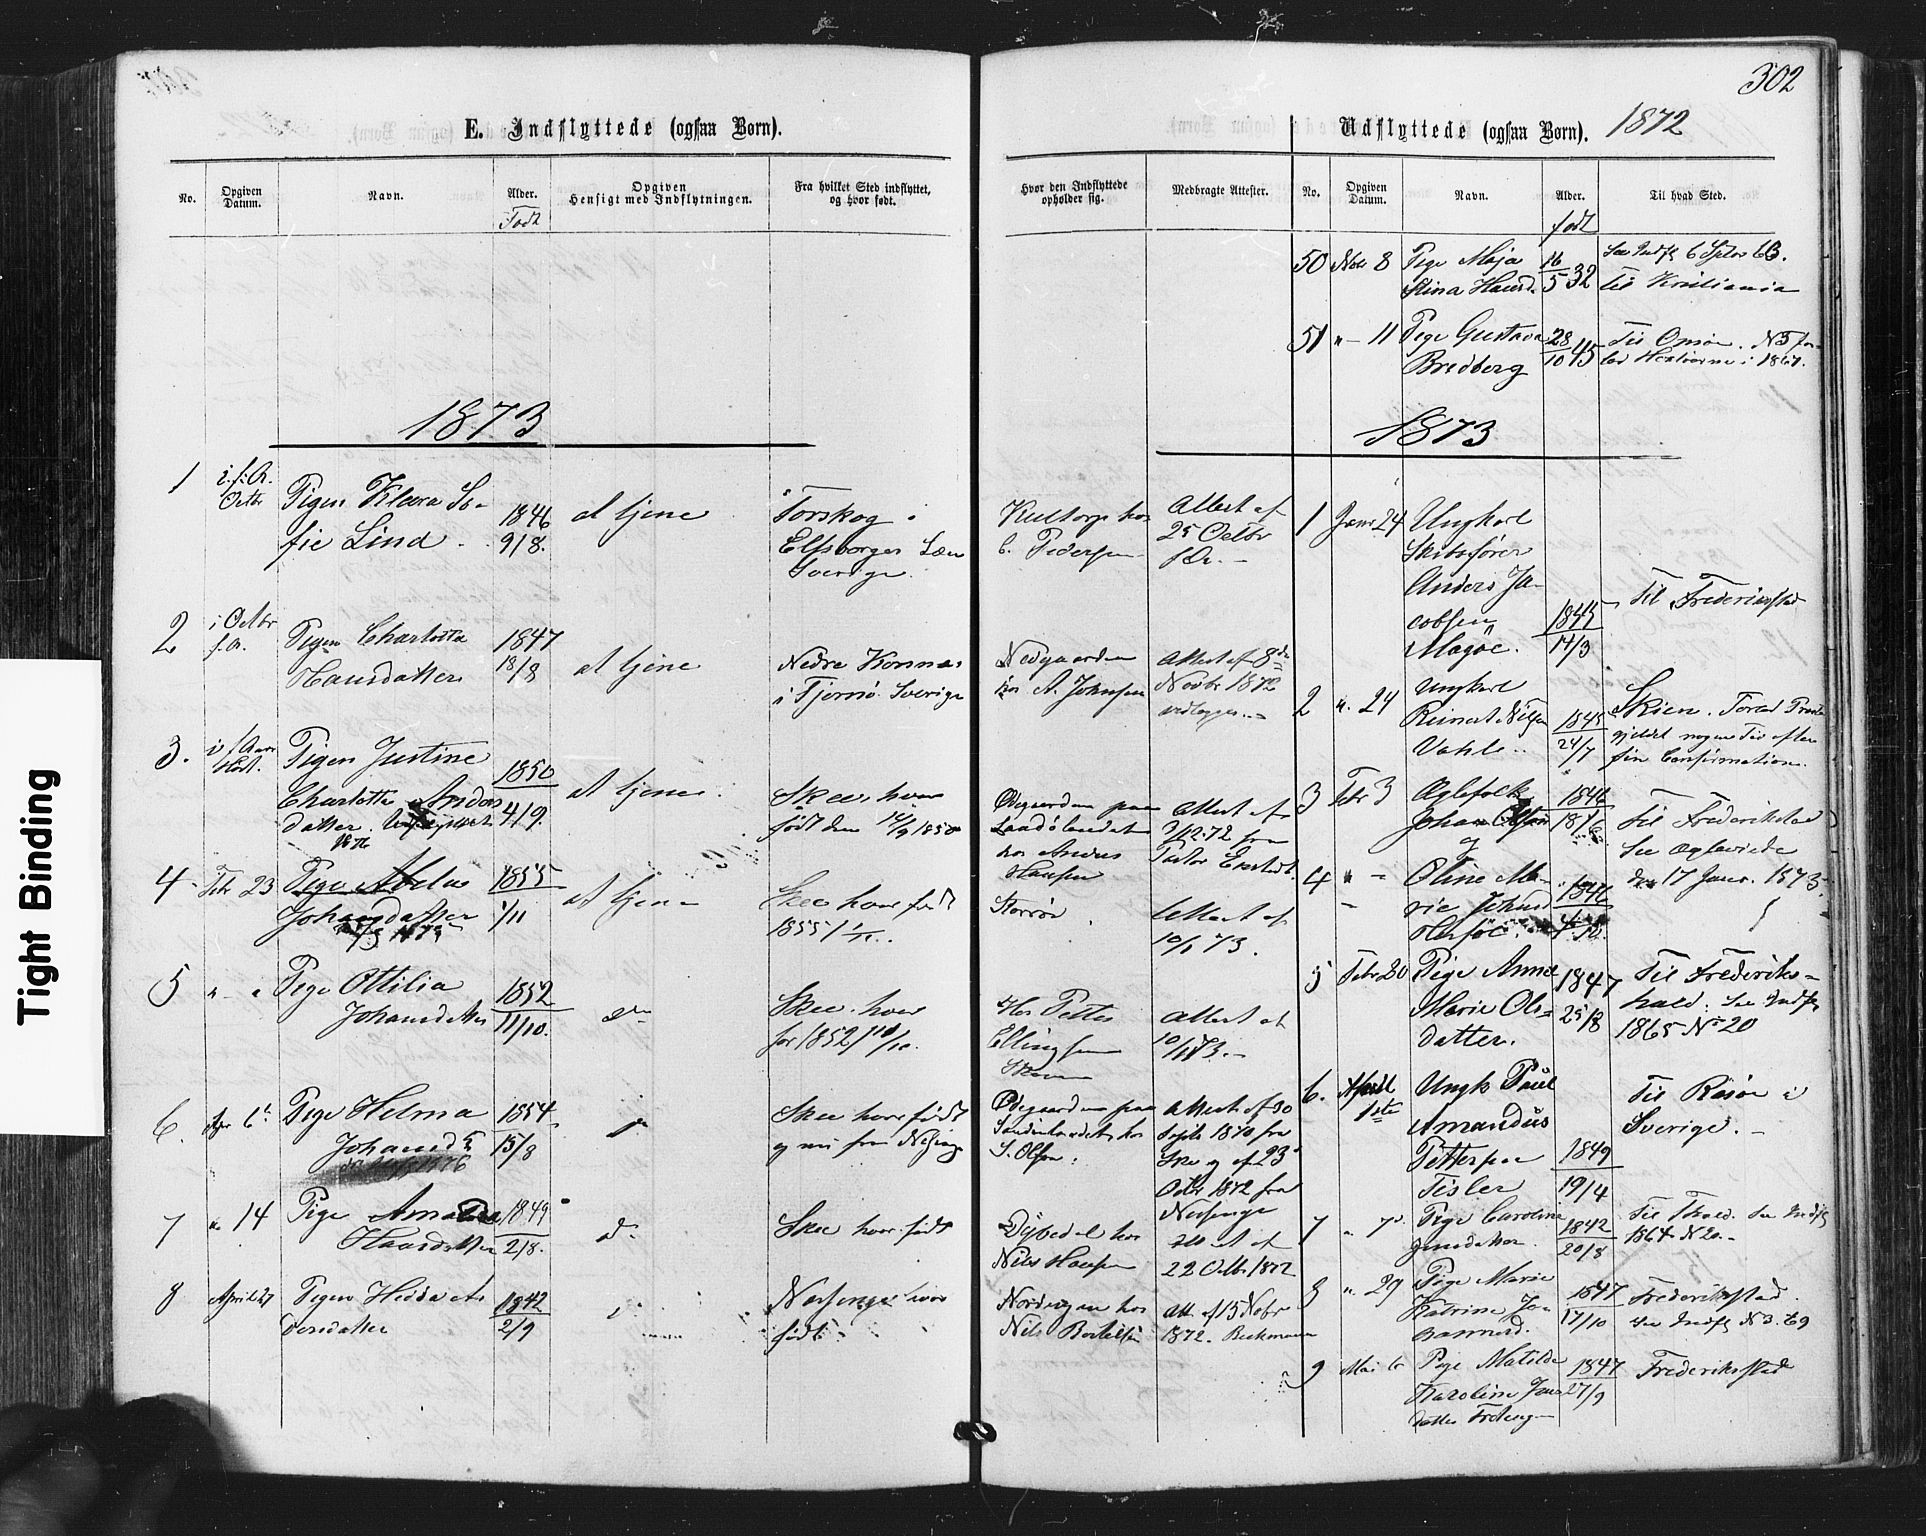 302
E. Indflyttede (ogsaa Børn).
No.
Opgiven
Datum.
Navn.
Alder.
Født
Opgiven
Hensigt med Indflytningen.
Fra hvilket Sted indflyttet,
og hvor født.
Hvor den Indflyttede
opholder sig.
Medbragte Attester.
1873
1
Octbr
Pigen Klara So-
fie Lind
1846
9/8.
at tjene
Torskog i
Elfsborgs Læn
Sverige.
Kultorp hos
Pedersen
Attest af
25 Octbr
2
i Octbr
f. A.
Pigen Charlotta
Hansdatter
1847
18/8
at tjene
Nedre Kornnæs
i Tjernø. Sverige
Nedgaarden
hos A. Johnsen
Attest af 8de
Novbr 1872
vedlagges.
3.
Pigen Justine
Charlotta Anders
datter.
1876
1850
4/9.
at tjene.
Skee, hvor
født den 14/9 1850
Ødegaarden paa
hos Anders
Hansen
Attest af
3/12.72 fra
Pastor
4
Febr 23
Pige Abela
Johansdatter
1855
1/11
at tjene
Skee hvor født
1855 1/11.
Storrøe
Attest af
10/1 73.
5
Pige Ottilia
Johansdatter
1852
11/10.
Skee. hvor
før 1852 11/10.
Hos Petter
Ellingsen
Attest af
10/1 73.
6.
Apr 6t
Pige Helma
Johansd
1854
15/8
Skee hvor født
og nu fra
Ødegaarden paa
S. Olsen.
Attest af 30
Septb 1870 fra
Skee og af 23
Octbr 1872 fra
7
" 14
Pige Amanda
Hansdatter
1849
2/8.
Skee hvor født
Dybedal hos
Nils Hansen
Attest af
22 Octbr 1872
8
April 27
Pigen Hedda An-
dersdatter
1842
2/9
hvor
født.
Nordengen hos
Nils Bertelsen
Att. af 15 Novbr
1872. Beckmann
Udflyttede (ogsaa Børn). 1872
No.
Opgiven
Datum.
Navn.
Alder.
født
Til hvad Sted.
50
Nov 8
Pige Maja
Stina Hansd.
16/5 32
Til Kristiania
51
" 11
Pige Gustava
Bredberg
28/10 45
Til Onsøe. N 5
1867.
1873
1
Janr 24
Ungkarl
Skibsfører
Anders Ja-
cobsen
Magøe.
1844
14/3
Til Frederikstad
2
" 24
Ungkarl
Reinert Nilsen
1845
24/7
Skien. Forlod Præste
gjeldet nogen Tid efter
sin Confirmation.
3
Febr 3
Ægtefolk
Johan Olsen
og
1846
18/6
Til Frederikstad
See Ægteviede
den 17 Janr. 1873.
4
Oline Ma-
rie Johnsd
Herføl.
1846
5
Febr 20
Pige Anna
Marie Ols-
datter.
1847
25/8
Til Frederiks-
hald. See Indfl
1865 No 20
6.
April
1ste
Ungk Paul
Amandus
Petterpaa
Tisler
1849
19/4
Til Rasøe i
Sverige.
7
" 7
Pige Carolina
Jensdatter.
1842
20/8
Til Fhald. See Indfl
1864 N 20.
8
" 29
Pige Marie
Katrine Jo-
hannesd.
1847
17/10
Frederikstad.
See Indfl N 3. 69
9
Mai 6
Pige Matilde
Karoline Jans
datter
1847
27/9
Frederikstad
Tight Binding